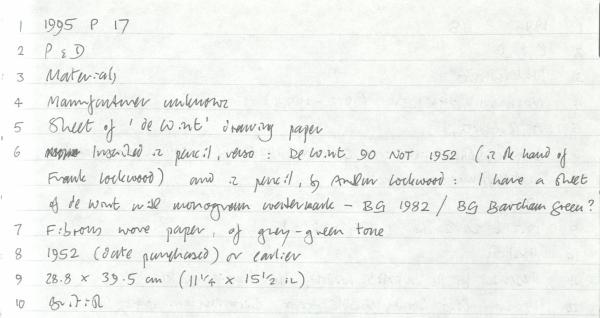 1 1995 P 17
2 P & D
3 Materials
4 Manufacturer unknown
5 Sheet of 'de Wint' drawing paper
6 Inscribed in pencil, verso : De Wint 90 NOT 1952 (in the hand of
Frank Lockwood) and in pencil, by Lockwood : I have a sheet
of de Wint with monogram watermark – BG 1982 / BG Barcham Green?
7 Fibrous wove paper, of grey-green tone
8 1952 (date purchased) or earlier
9 28.8 × 39.5 cm (11 1/4 × 15 1/2 in)
10 British